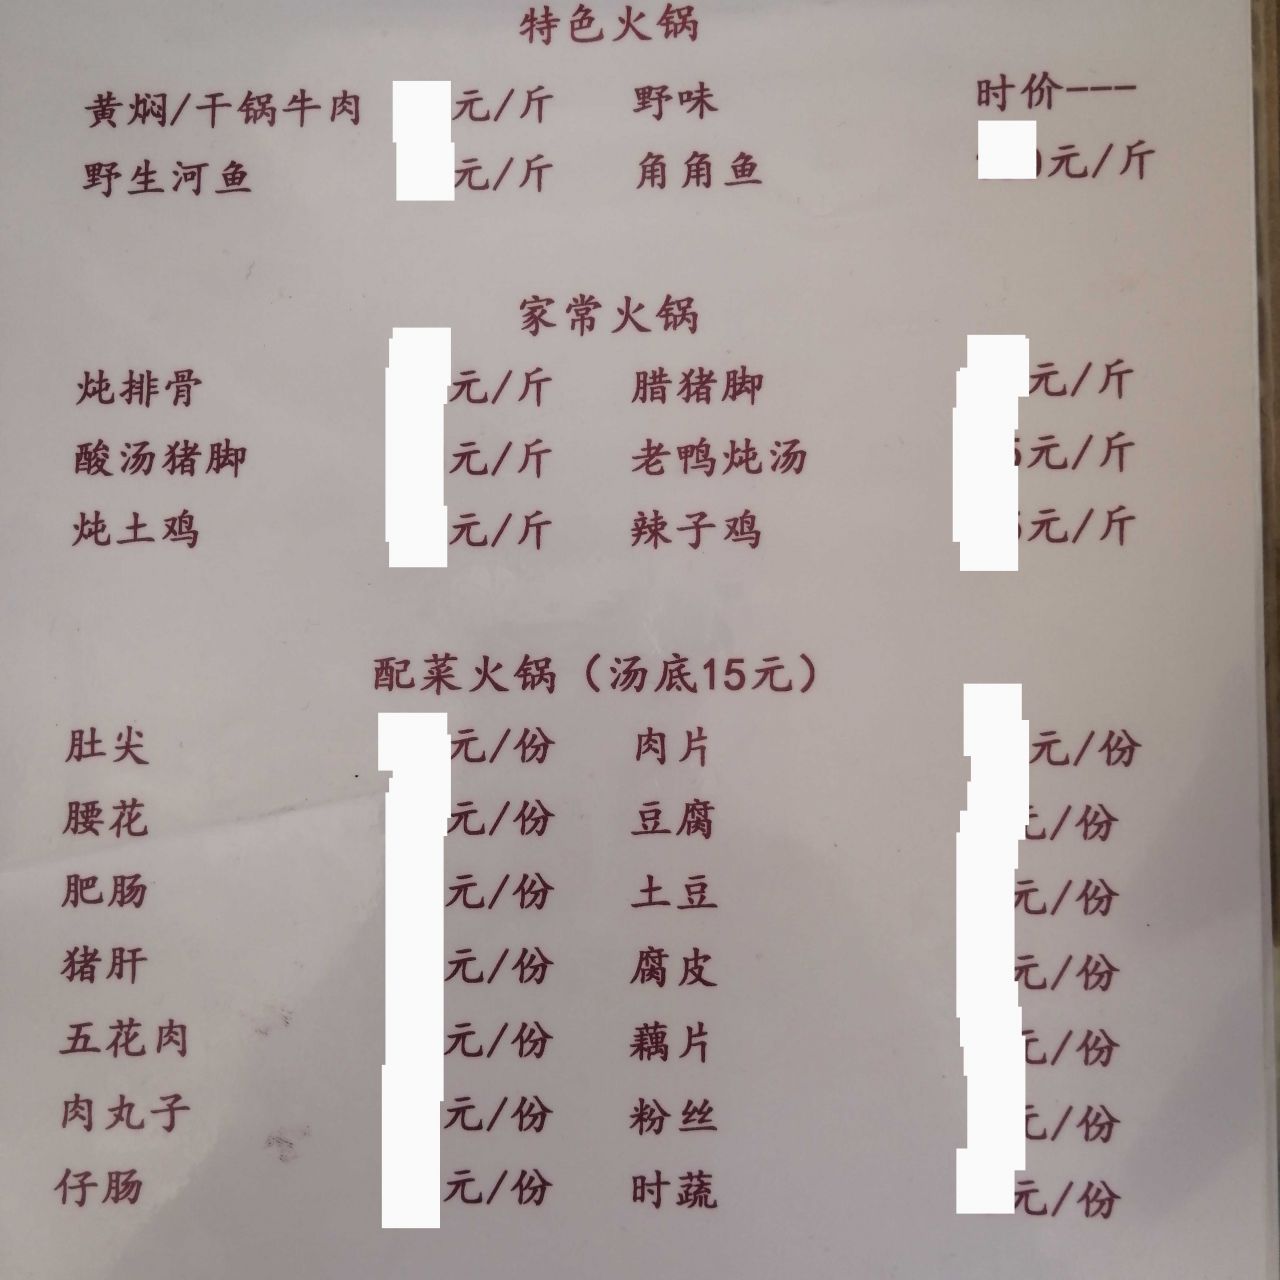 特色火锅
黄焖/干锅牛肉 元/斤 野味 时价---
野生河鱼 元/斤 角角鱼 元/斤
家常火锅
炖排骨 元/斤 腊猪脚 元/斤
酸汤猪脚 元/斤 老鸭炖汤 元/斤
炖土鸡 元/斤 辣子鸡 元/斤
配菜火锅（汤底15元）
肚尖 元/份 肉片 元/份
腰花 元/份 豆腐 元/份
肥肠 元/份 土豆 元/份
猪肝 元/份 腐皮 元/份
五花肉 元/份 藕片 元/份
肉丸子 元/份 粉丝 元/份
仔肠 元/份 时蔬 元/份